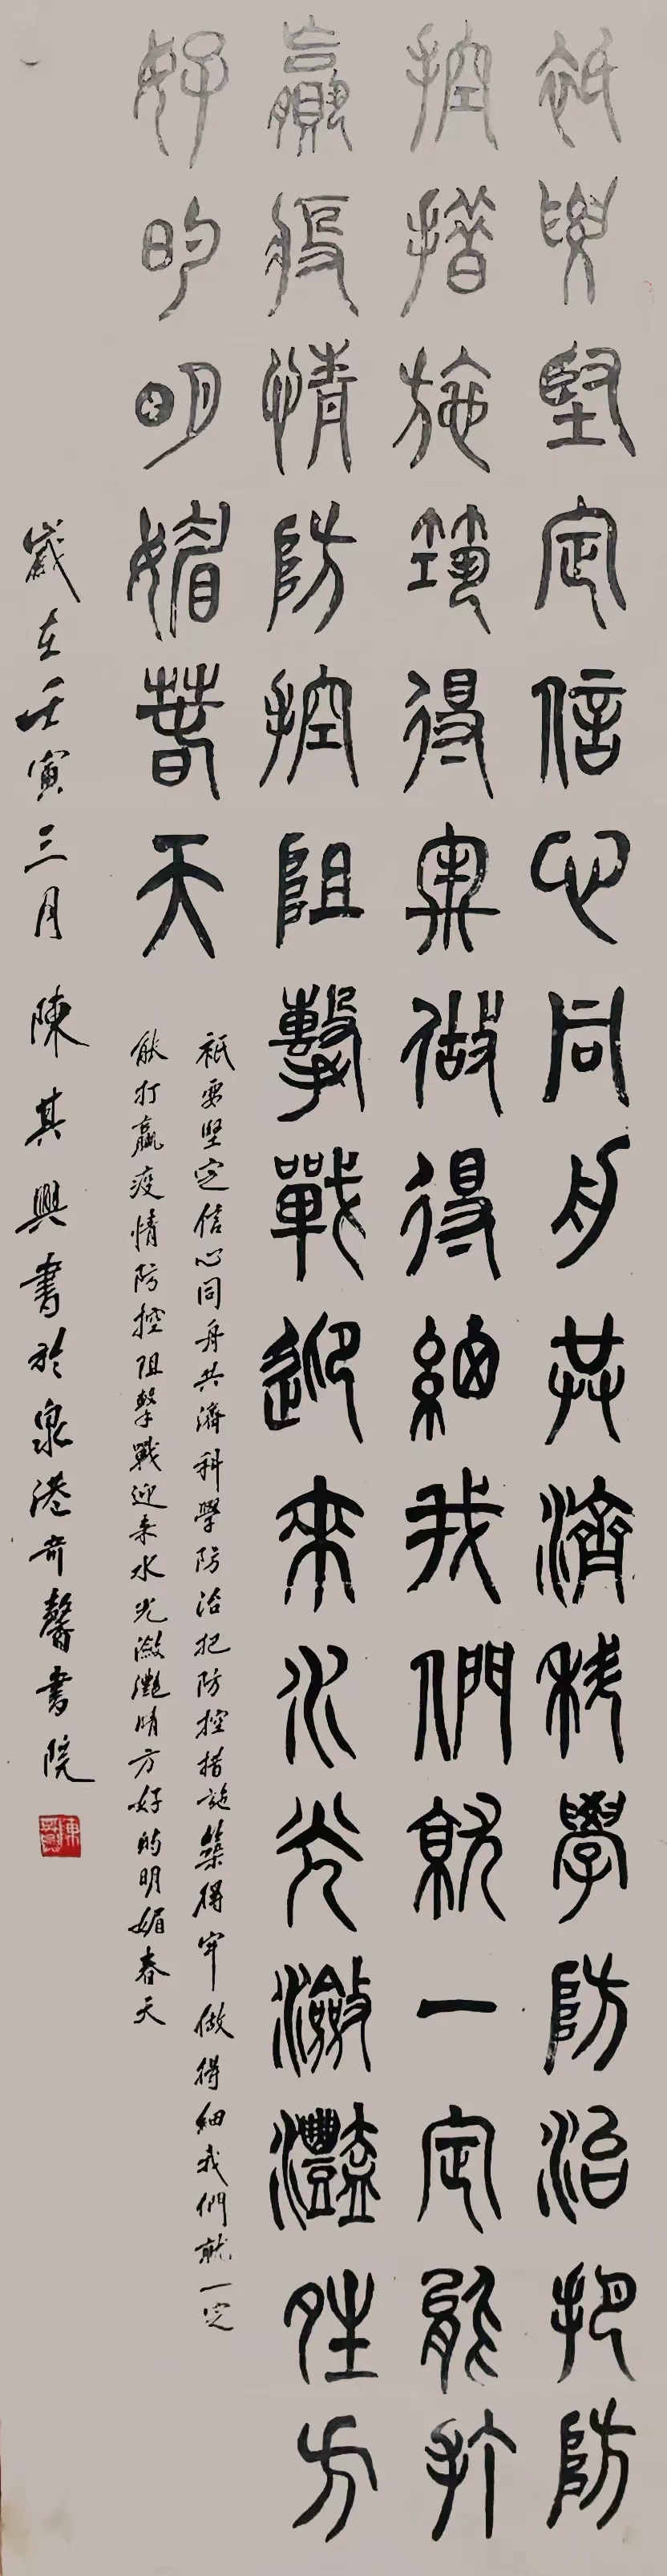 衹要堅定信心同舟共濟科學防治把防
控措施築得牢做得細我們就一定能打
贏疫情防控阻擊戰迎來水光瀲灩晴方
好的明媚春天
衹要堅定信心同舟共濟科學防治把防控措施築得牢做得細我們就一定
能打贏疫情防控阻擊戰迎來水光瀲灩晴方好的明媚春天
歲在壬寅三月陳其興書於泉港奇馨書院